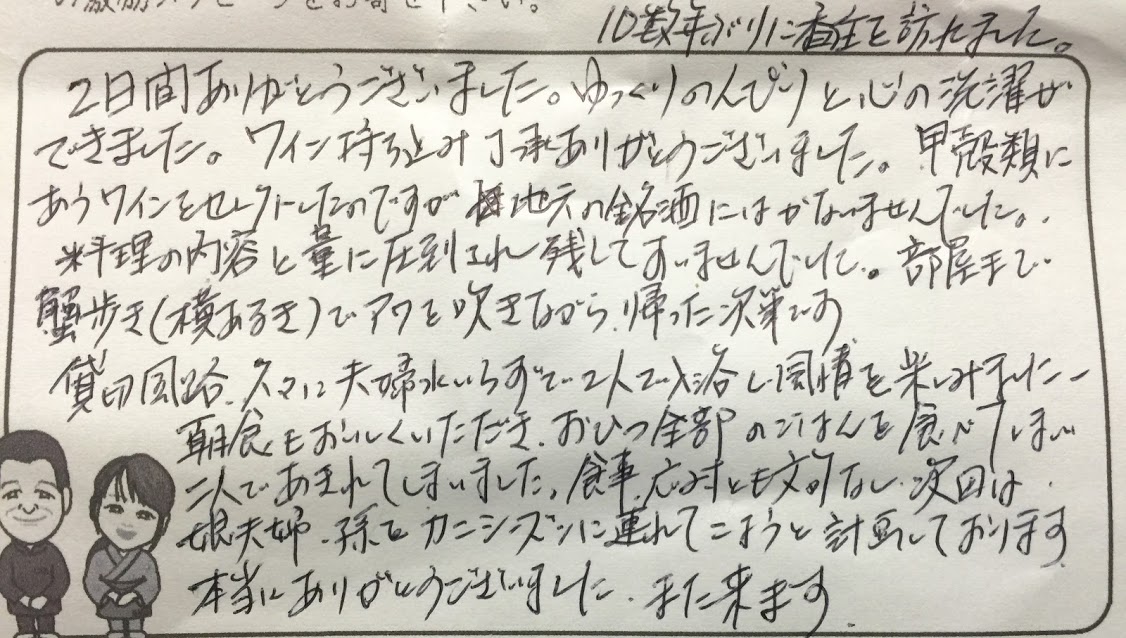 の激励メッセージをお寄せ下さい。
10数年ぶりに香住を訪れました。
2日間ありがとうございました。ゆっくりのんびりと心の洗濯が
できました。ワイン持ち込み了承ありがとうございました。甲殻類に
あうワインをセレクトしたのですが 地元の銘酒にはかないませんでした。
料理の内容と量に圧倒され残してすいませんでした。部屋まで
蟹歩き(横あるき)でアワを吹きながら、帰った次第です
貸切風路、久々に夫婦水いらずで2人で入浴し風情を楽しみました
朝食もおいしくいただき、おひつ全部のごはんを食べてしまい
二人であきれてしまいました。食事、応対とも文句なし、次回は
娘夫婦、孫をカニシーズンに連れてこようと計画しております
本当にありがとうございました、また来ます